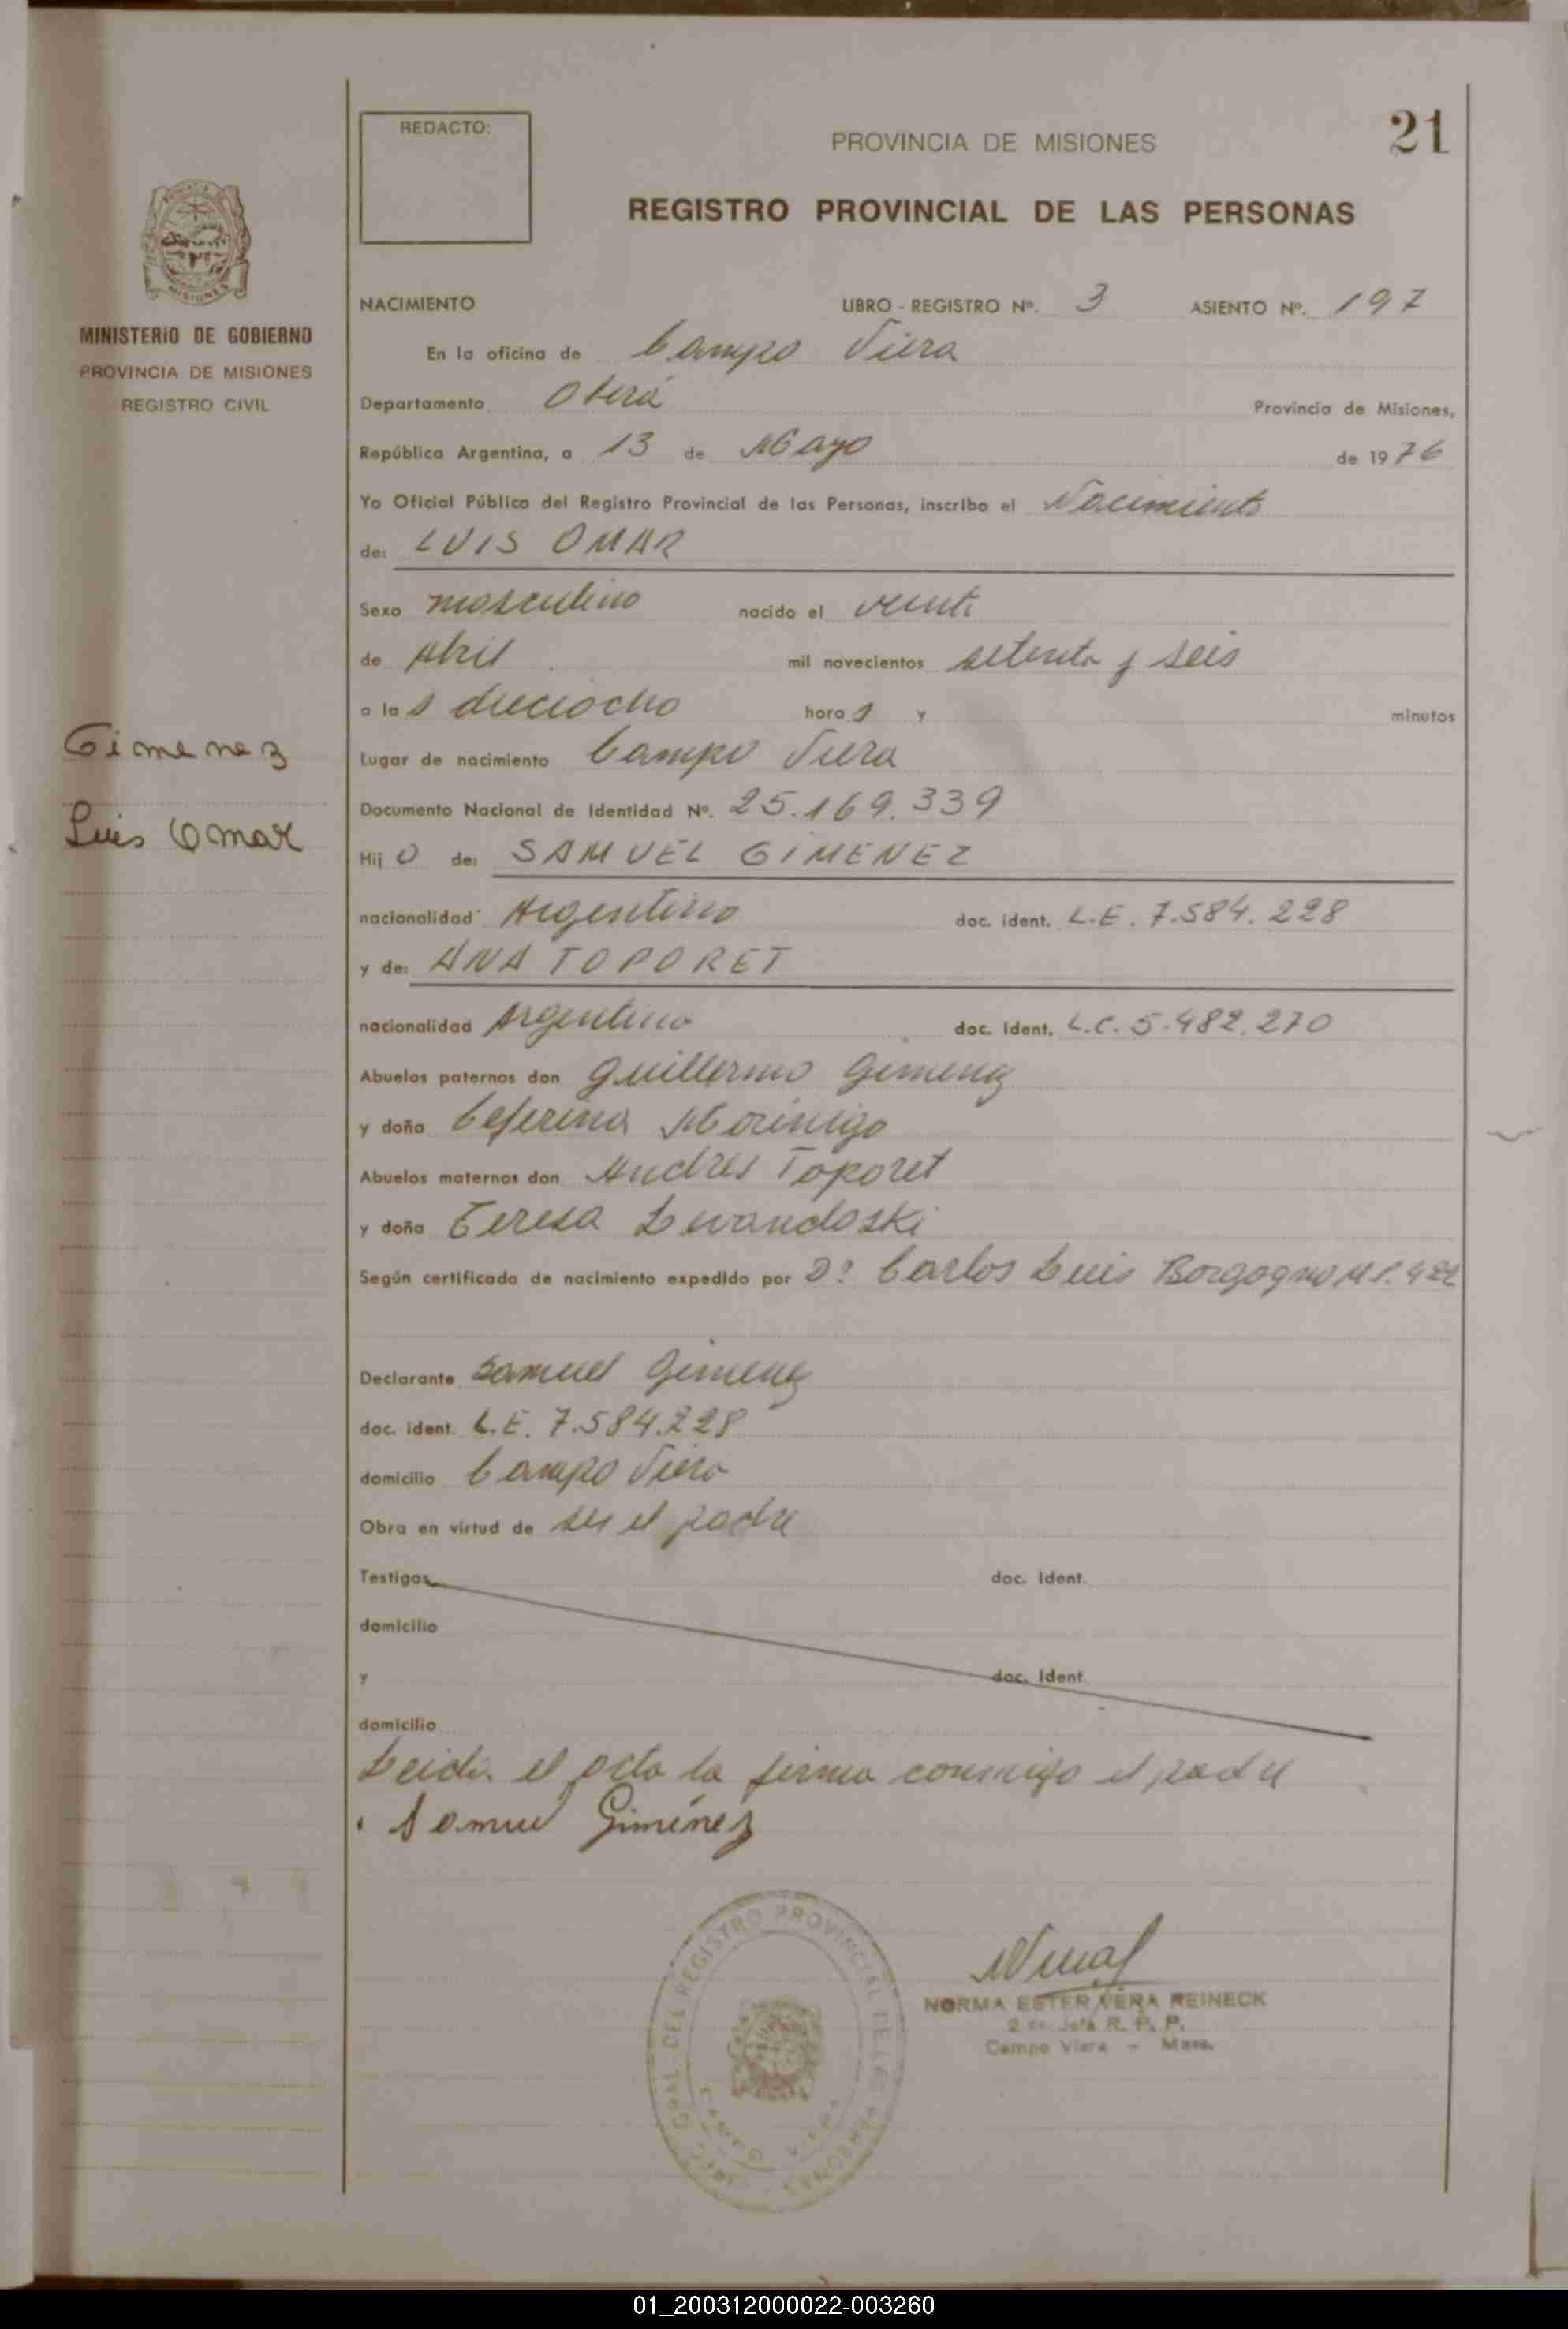 REDACTO:
21
PROVINCIA DE MISIONES
REGISTRO PROVINCIAL DE LAS PERSONAS
MISIONES
MINISTERIO DE GOBIERNO
PROVINCIA DE MISIONES
REGISTRO CIVIL
NACIMIENTO LIBRO - REGISTRO Nº. 3 ASIENTO Nº. 197
En la oficina de Campo Viera
Departamento Oberá Provincia de Misiones,
República Argentina, a 13 de Mayo de 1976
Yo Oficial Público del Registro Provincial de las Personas, inscribo el Nacimiento
de: LUIS OMAR
Sexo masculino nacido el veinti
de Abril mil novecientos setenta y seis
a las dieciocho horas y minutos
Gimenez
Luis Omar
Lugar de nacimiento Campo Viera
Documento Nacional de Identidad Nº. 25.169.339
Hijo de: SAMUEL GIMENEZ
nacionalidad Argentino doc. ident. L.E. 7.584.228
y de: ANA TOPORET
nacionalidad Argentina doc. ident. L.C. 5.482.270
Abuelos paternos don Guillermo Gimenez
y doña Ceferina Morinigo
Abuelos maternos don Andres Toporet
y doña Teresa Levandoski
Según certificado de nacimiento expedido por Dr Carlos Luis Borgogno M.P.
Declarante Samuel Gimenez
doc. ident. L.E. 7.584.228
domicilio Campo Viera
Obra en virtud de ser el padre
Testigos doc. ident.
domicilio
y doc. ident.
domicilio
Leida el acta la firma conmigo el padre
Samuel Giménez
GRAL. DEL REGISTRO PROVINCIAL DE LAS PERSONAS
CAMPO VIERA
NORMA ESTER VERA REINECK
Jefa R. P. P.
Campo Viera - Mnes.
01_200312000022-003260